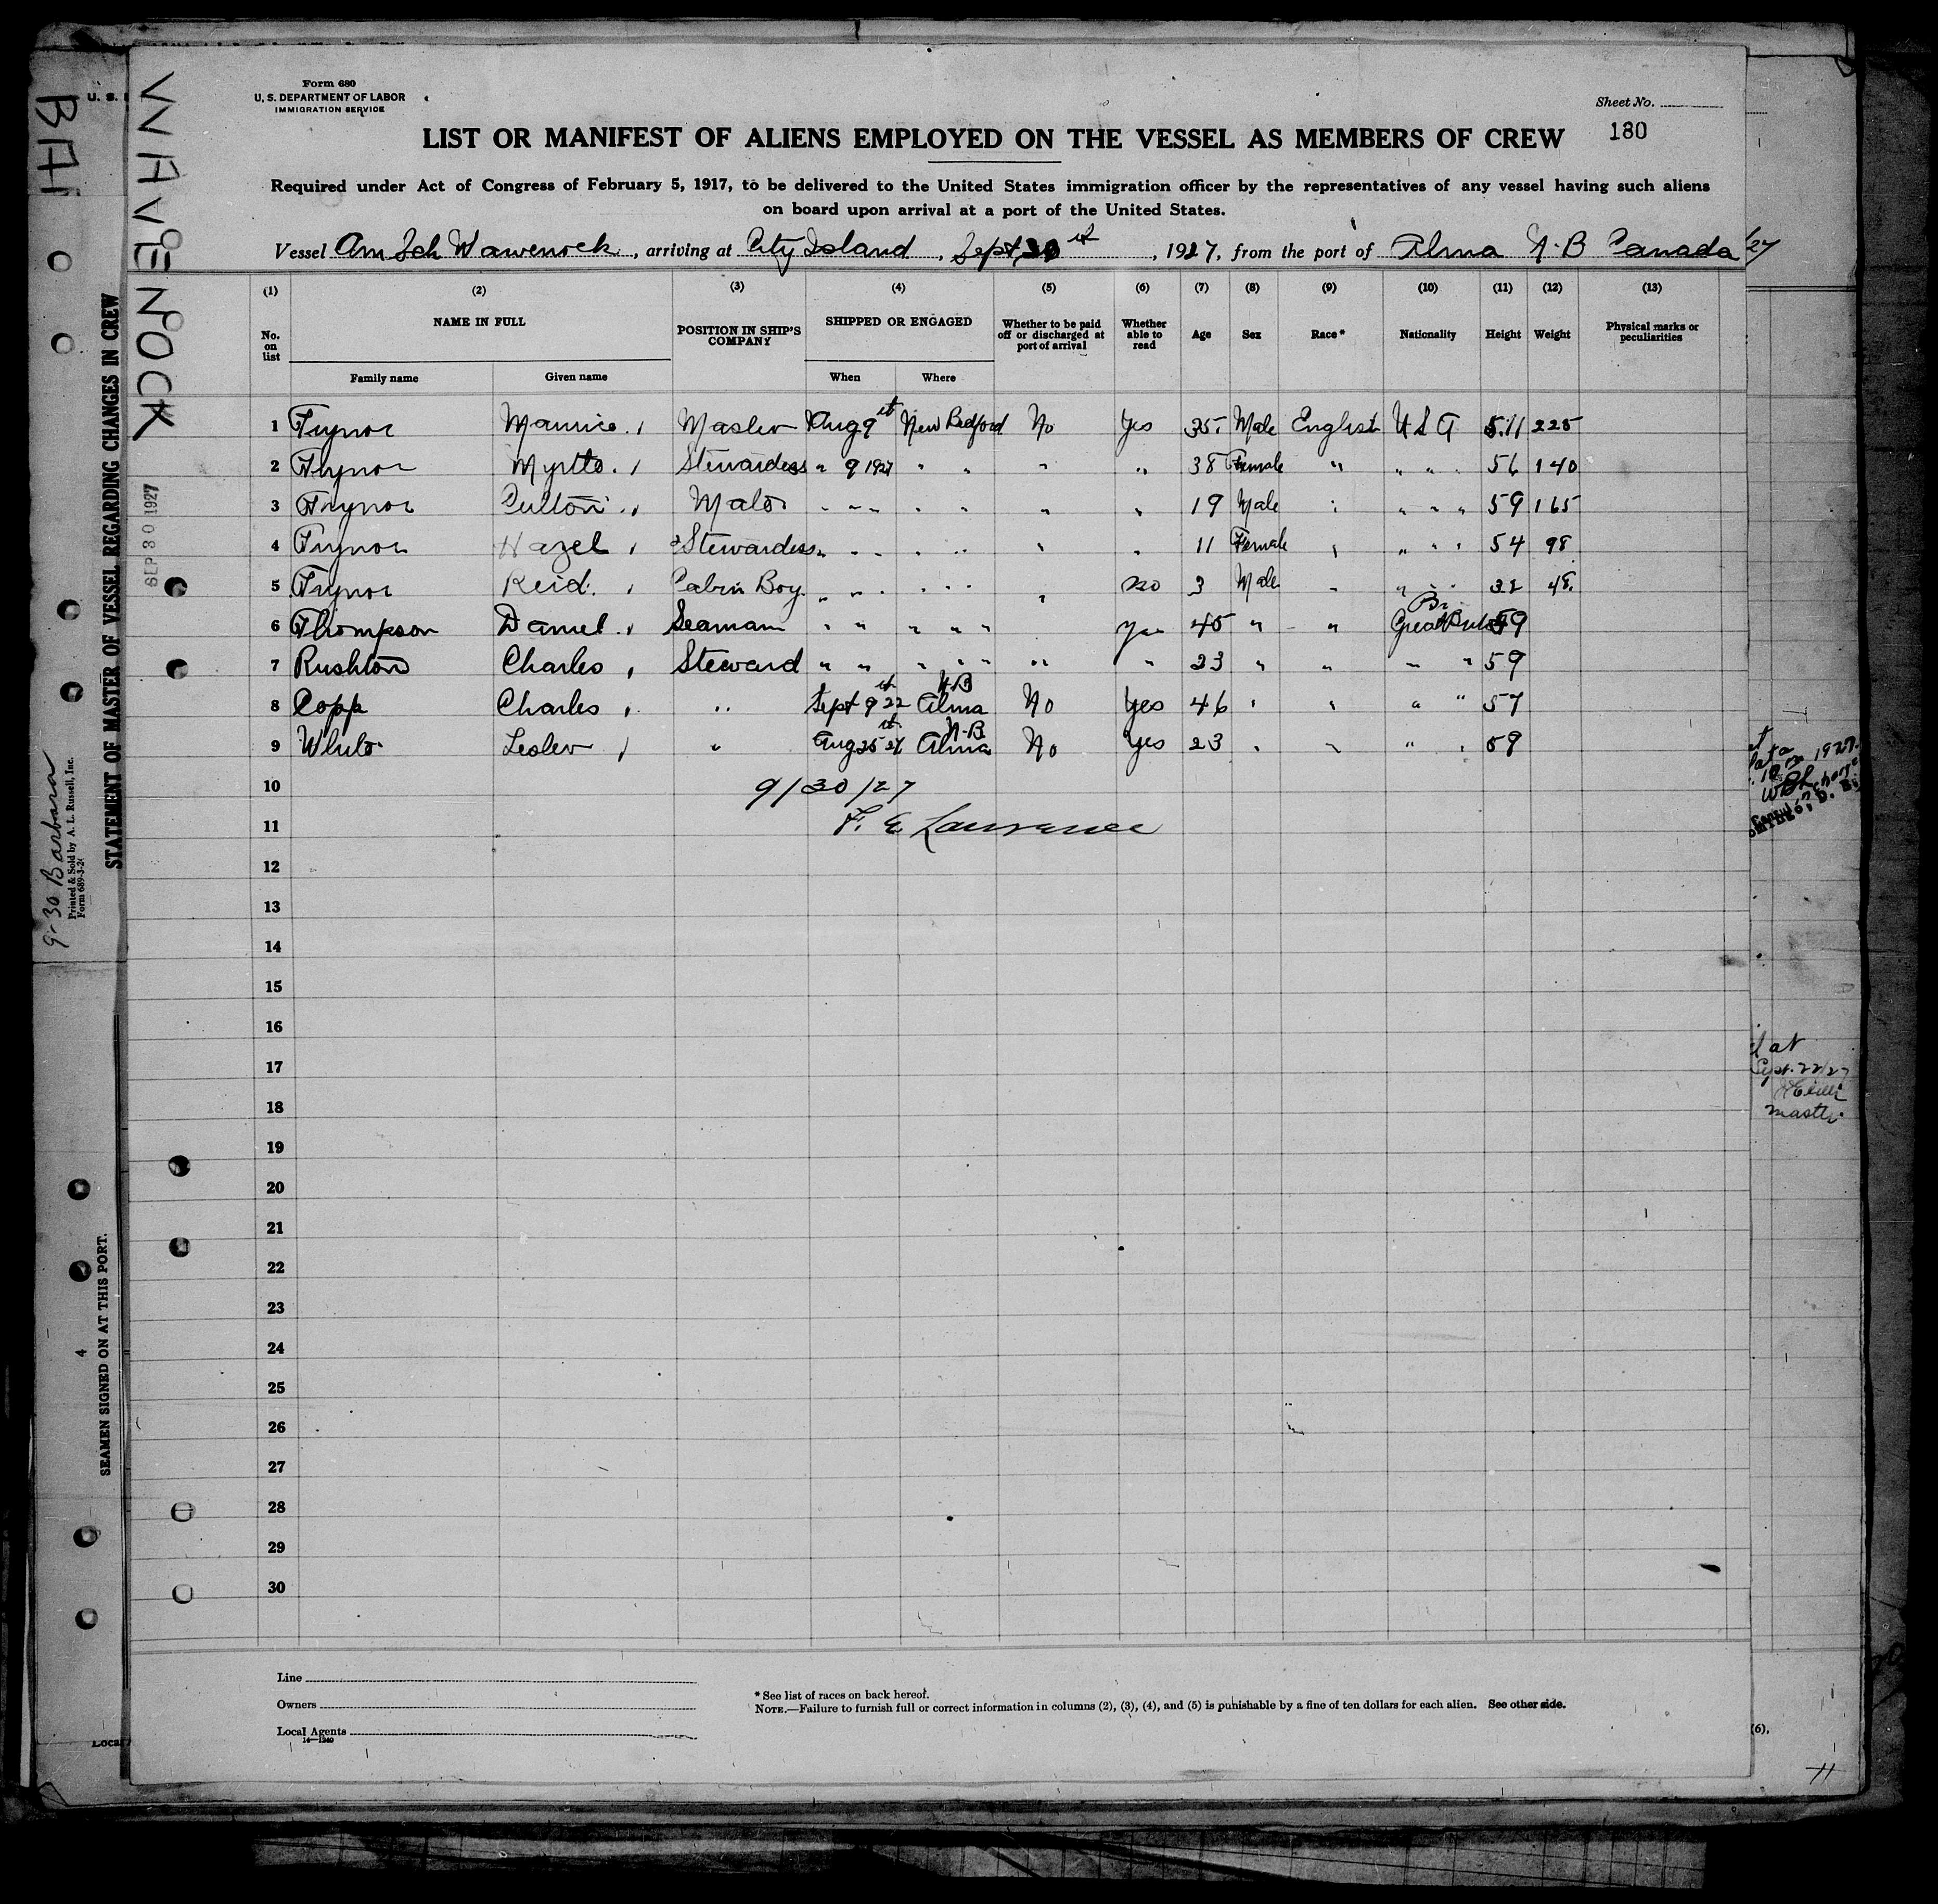 Form 680
U. S. DEPARTMENT OF LABOR
IMMIGRATION SERVICE
Sheet No.
180
LIST OR MANIFEST OF ALIENS EMPLOYED ON THE VESSEL AS MEMBERS OF CREW
Required under Act of Congress of February 5, 1917, to be delivered to the United States immigration officer by the representatives of any vessel having such aliens
on board upon arrival at a port of the United States.
Vessel Am Sch Wawenock, arriving at City Island, Sept 30, 1927, from the port of Alma N.B Canada
(1) (2) (3) (4) (5) (6) (7) (8) (9) (10) (11) (12) (13)
No. on list
NAME IN FULL
Family name
Given name
POSITION IN SHIP'S COMPANY
SHIPPED OR ENGAGED
When
Where
Whether to be paid off or discharged at port of arrival
Whether able to read
Age
Sex
Race *
Nationality
Height
Weight
Physical marks or peculiarities
1 Trynor Maurice Master Aug 9 New Bedford No Yes 35 Male English U S A 5.11 225
2 Trynor Stewardess " 9 1927 " " " " 38 Female " " " 56 140
3 Trynor Mate " " " " " " " 19 Male " " " " 59 165
4 Trynor Hazel Stewardess " " " " " " " 11 Female " " " " 54 98
5 Trynor Reid Cabin Boy " " " " " " " No 3 Male " " " " 32 48
6 Thompson Daniel Seaman " " " " " Yes 45 " " Great 59
7 Rushton Charles Steward " " " " " " " 23 " " " " 59
8 Copp Charles " Sept 9 Alma N.B No Yes 46 " " " " 57
9 White Lesley " Aug 25 Alma N-B No Yes 23 " " " " 59
10 9/30/27
11 F. E. Lawrence
12
13
14
15
16
17
18
19
20
21
22
23
24
25
26
27
28
29
30
Line
Owners
Local Agents
14—1240
* See list of races on back hereof.
NOTE.—Failure to furnish full or correct information in columns (2), (3), (4), and (5) is punishable by a fine of ten dollars for each alien. See other side.
WAWENOCK
SEP 30 1927
STATEMENT OF MASTER OF VESSEL REGARDING CHANGES IN CREW
BA
9-30 Barbara
Printed & Sold by A. L. Russell, Inc.
Form 689-3-2
SEAMEN SIGNED ON AT THIS PORT.
4
U. S.
Local
at
Sept. 22/27
master
(6).